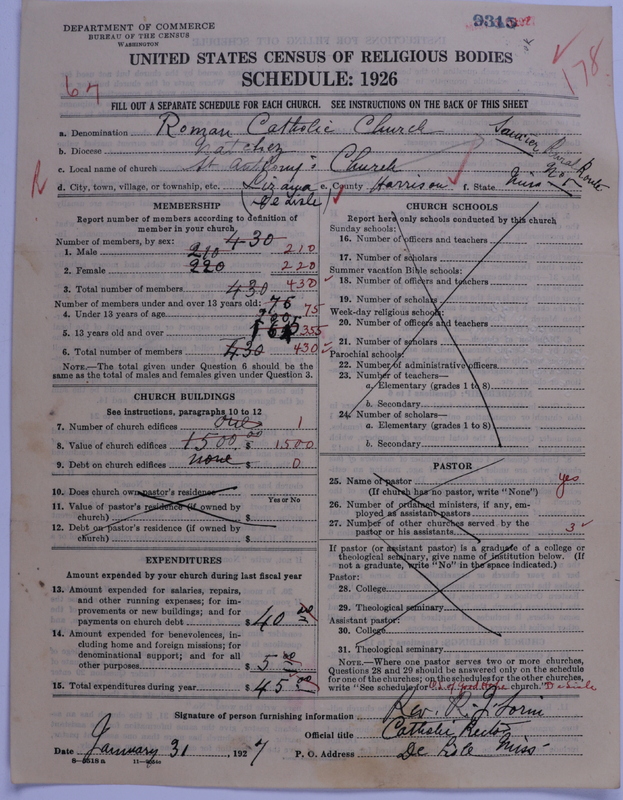 DEPARTMENT OF COMMERCE
BUREAU OF THE CENSUS
WASHINGTON
9315
UNITED STATES CENSUS OF RELIGIOUS BODIES
SCHEDULE: 1926
67
178
FILL OUT A SEPARATE SCHEDULE FOR EACH CHURCH. SEE INSTRUCTIONS ON THE BACK OF THIS SHEET
a. Denomination Roman Catholic Church
b. Diocese Natchez
c. Local name of church St Anthony's Church
d. City, town, village, or township, etc. Lizana e. County Harrison f. State Miss
(De Lisle)
Saucier Rural Route
MEMBERSHIP
Report number of members according to definition of member in your church.
Number of members, by sex: 430
1. Male 210 210
2. Female 220 220
3. Total number of members 430 430
Number of members under and over 13 years old:
4. Under 13 years of age 75 75
5. 13 years old and over 355
6. Total number of members 430 430
NOTE.—The total given under Question 6 should be
same as the total of males and females given under Question 3.
CHURCH BUILDINGS
See instructions, paragraphs 10 to 12
7. Number of church edifices one 1
8. Value of church edifices $ 1500 00 1500
9. Debt on church edifices none $ 0
10. Does church own pastor's residence
Yes or No
11. Value of pastor's residence (if owned by
church) $
12. Debt on pastor's residence (if owned by
church) $
EXPENDITURES
Amount expended by your church during last fiscal year
13. Amount expended for salaries, repairs,
and other running expenses; for im-
provements or new buildings; and for
payments on church debt $ 40 00
14. Amount expended for benevolences, in-
cluding home and foreign missions; for
denominational support; and for all
other purposes $ 5 00
15. Total expenditures during year $ 45 00
CHURCH SCHOOLS
Report here only schools conducted by this church
Sunday schools:
16. Number of officers and teachers
17. Number of scholars
Summer vacation Bible schools:
18. Number of officers and teachers
19. Number of scholars
Week-day religious schools:
20. Number of officers and teachers
21. Number of scholars
Parochial schools:
22. Number of administrative officers
23. Number of teachers—
a. Elementary (grades 1 to 8)
b. Secondary
24. Number of scholars—
a. Elementary (grades 1 to 8)
b. Secondary
PASTOR
25. Name of pastor yes
(If church has no pastor, write "None")
26. Number of ordained ministers, if any, em-
ployed as assistant pastors
27. Number of other churches served by the
pastor or his assistants 3
If pastor (or assistant pastor) is a graduate of a college or
theological seminary, give name of institution below. (If
not a graduate, write "No" in the space indicated.)
Pastor:
28. College
29. Theological seminary
Assistant pastor:
30. College
31. Theological seminary
NOTE.—Where one pastor serves two or more churches,
Questions 28 and 29 should be answered only on the schedule
for one of the churches; on the schedules for the other churches,
write "See schedule for Our of Good Hope church." De Lisle
Signature of person furnishing information Rev. R. J. Sorin
Official title Catholic Rector
Date January 31, 1927 P. O. Address De Lisle Miss
8—5518 a